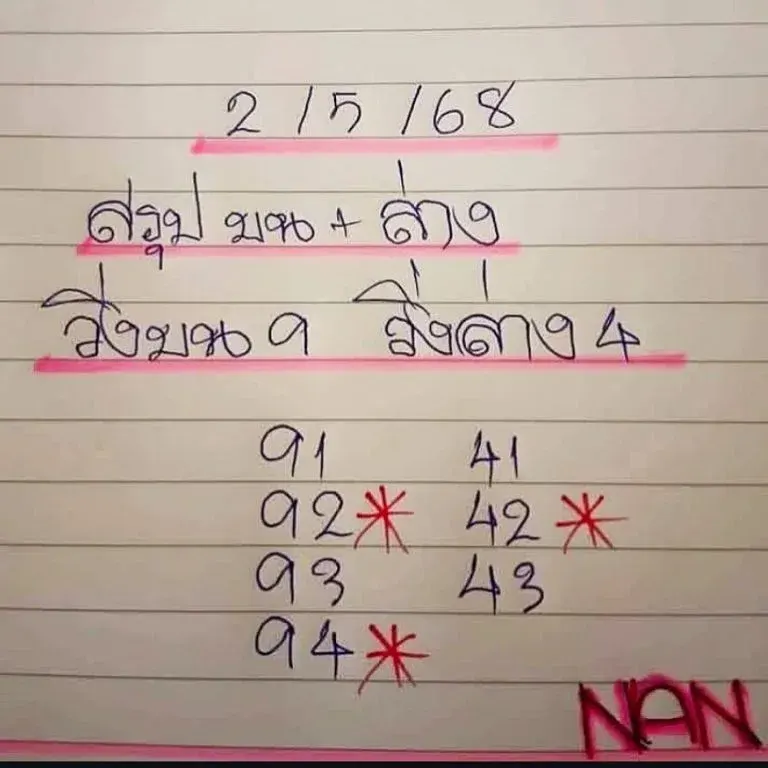 2 / 5 / 68
สรุป บน + ล่าง
วิ่งบน 9 วิ่งล่าง 4
91 41
92* 42*
93 43
94*
NAN